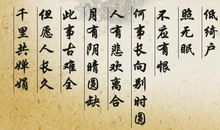 倚绮户
照无眠
不应有恨
何事长向别时圆
人有悲欢离合
月有阴晴圆缺
此事古难全
但愿人长久
千里共婵娟